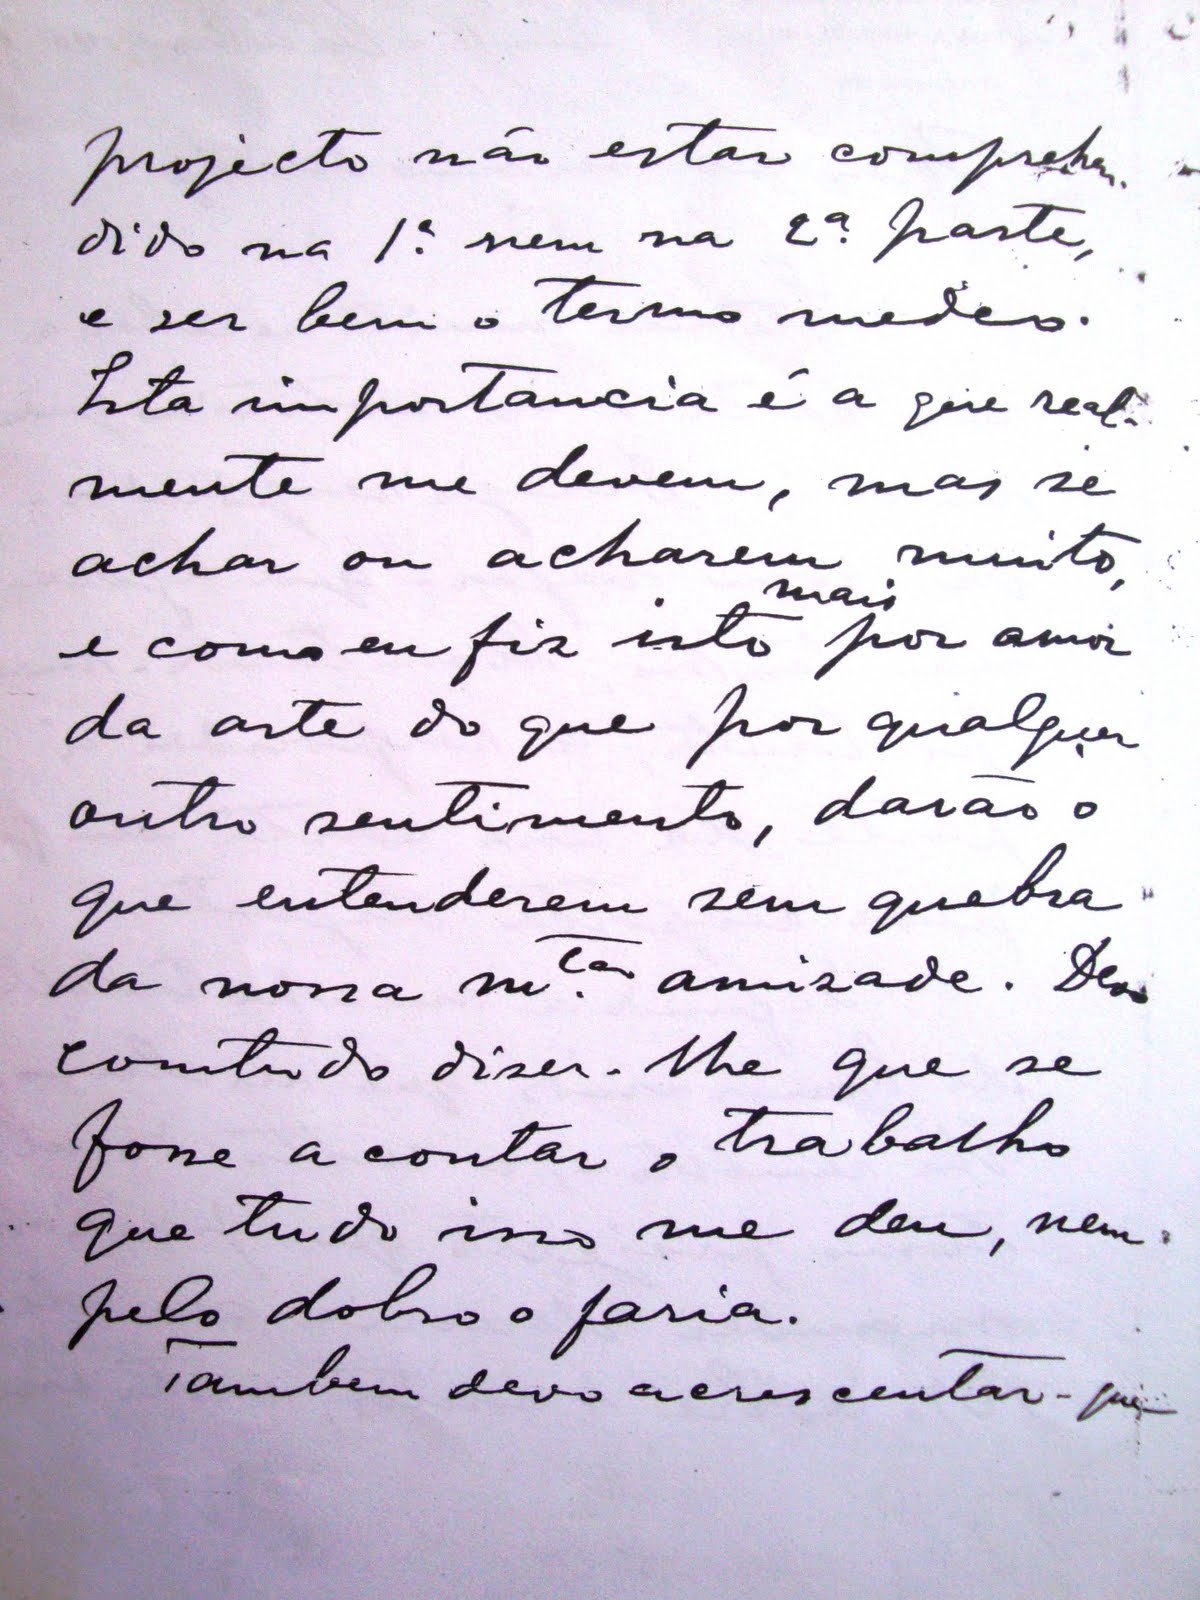 projecto não estar comprehen-
dido na 1ª nem na 2ª parte,
e ser bem o termo medio.
Esta importancia é a que real-
mente me devem, mas se
achar ou acharem muito,
e como eu fiz isto mais por amor
da arte do que por qualquer
outro sentimento, darão o
que entenderem sem quebra
da nossa m.ta amizade. Devo
comtudo diser-lhe que se
fosse a contar o trabalho
que tudo isso me deu, nem
pelo dobro o faria.
Tambem devo acrescentar-